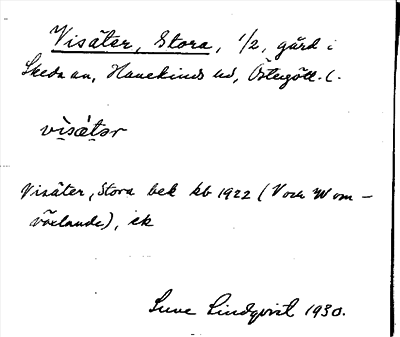 Visäter, Stora, 1/2, gård i
Skeda sn, Hanekinds hd, Östergötl. l.
visätər
Visäter, Stora bek kb 1922 (V och W om-
växlande), ek
Sune Lindqvist 1930.